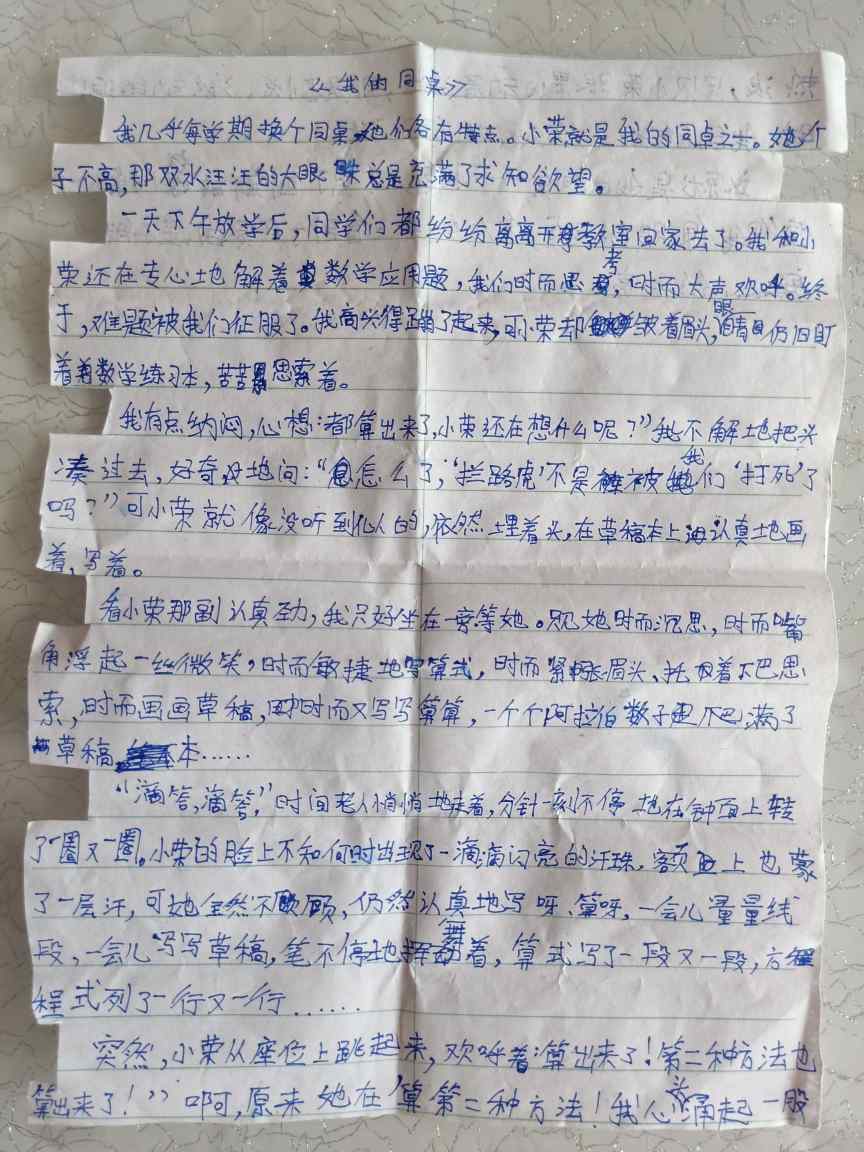 《我的同桌》
我几乎每学期换个同桌,她们各有特点。小荣就是我的同桌之一。她个
子不高,那双水汪汪的大眼总是充满了求知欲望。
一天下午放学后,同学们都纷纷离开教室回家去了。我和小
荣还在专心地解着数学应用题,我们时而思考,时而大声欢呼。终
于,难题被我们征服了。我高兴得蹦了起来,可小荣却皱着眉头,眼睛仍旧盯
着数学练习本,苦苦思索着。
我有点纳闷,心想:都算出来了,小荣还在想什么呢?”我不解地把头
凑过去,好奇地问:“怎么了,‘拦路虎’不是被我们‘打死’了
吗?”可小荣就像没听到似的,依然埋着头,在草稿本上认真地画
着,写着。
看小荣那副认真劲,我只好坐在一旁等她。只见她时而沉思,时而嘴
角浮起一丝微笑,时而敏捷地写算式,时而紧张眉头、托着下巴思
索,时而画画草稿,时而又写写算算,一个个阿拉伯数子爬满了
草稿本……
“滴答,滴答,”时间老人悄悄地走着,分针一刻不停地在钟面上转
了一圈又一圈。小荣的脸上不知何时出现了一滴滴闪亮的汗珠,额上也蒙
了一层汗,可她全然不顾,仍然认真地写呀、算呀,一会儿量量线
段,一会儿写写草稿,笔不停地舞着,算式写了一段又一段,方程
程式列了一行又一行……
突然,小荣从座位上跳起来,欢呼着:算出来了!第二种方法也
算出来了!”啊,原来她在算第二种方法!我心涌起一股